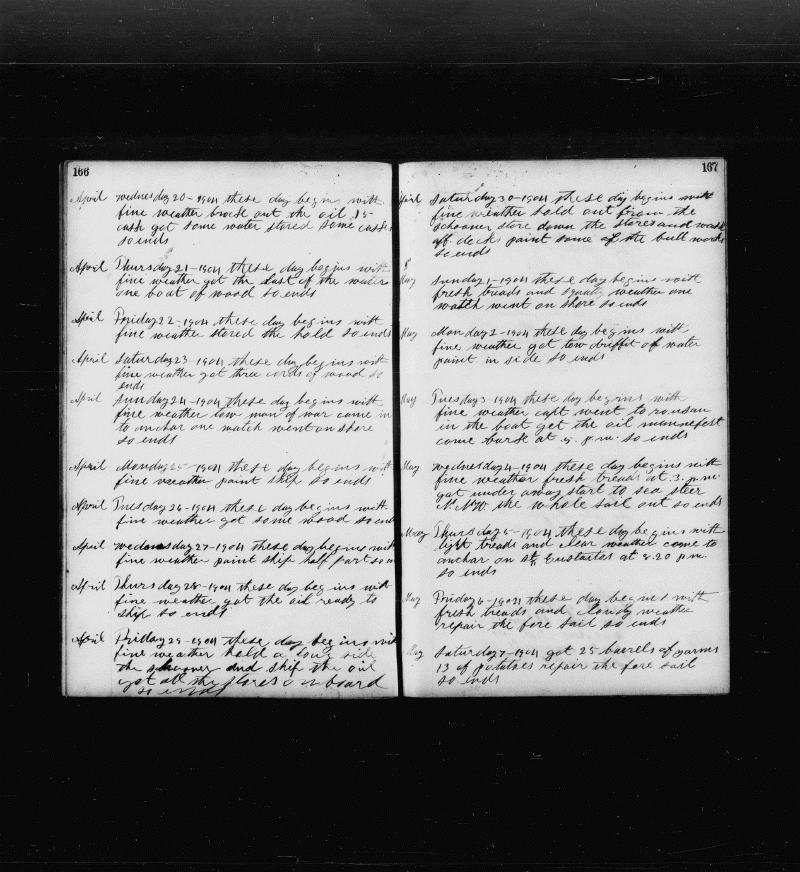 166
April wednesday 20-1904 these day begins with
fine weather brock out the oil 15
cash got some water stored some casks
so ends
April Thursday 21-1904 these day begins with
fine weather got the last of the water
one boat of wood so ends
April Friday 22-1904 these day begins with
fine weather stored the hold so ends
April saturday 23-1904 these day begins with
fine weather got three cords of wood so
ends
April sunday 24-1904 these day begins with
fine weather low man of war came in
to anchar one watch went on shore
so ends
April Monday 25-1904 these day begins with
fine weather paint ship so ends
April Tuesday 26-1904 these day begins with
fine weather got some wood so ends
April wednesday 27-1904 these day begins with
fine weather paint ship half part so
April Thursday 28-1904 these day begins with
fine weather got the oil ready to
ship so ends
April Friday 29-1904 these day begins with
fine weather hold a long side
the and ship the oil
got all the stores on board
so ends
167
April saturday 30-1904 these day begins with
fine weather hold out from the
schooner store down the stores and wash
off decks paint some of the bull works
so ends
May sunday 1-1904 these day begins with
fresh treads and squaly weather one
watch went on shore so ends
May Monday 2-1904 these day begins with
fine weather got tow of water
paint in side so ends
May Tuesday 3-1904 these day begins with
fine weather capt went to rousau
in the boat get the oil mannefest
come back at 5 p.m. so ends
May wednesday 4-1904 these day begins with
fine weather fresh treads at 3. p.m.
got under away start to sea steer
N.N.W. the whole sail out so ends
May Thursday 5-1904 these day begins with
light treads and clear weather come to
anchar on St Eustaites at 8.20 p.m.
so ends
May Friday 6-1904 these day begines with
fresh treads and cloudy weather
repair the fore sail so ends
May saturday 7-1904 got 25 barrels of yarms
13 of potatoes repair the fore sail
so ends